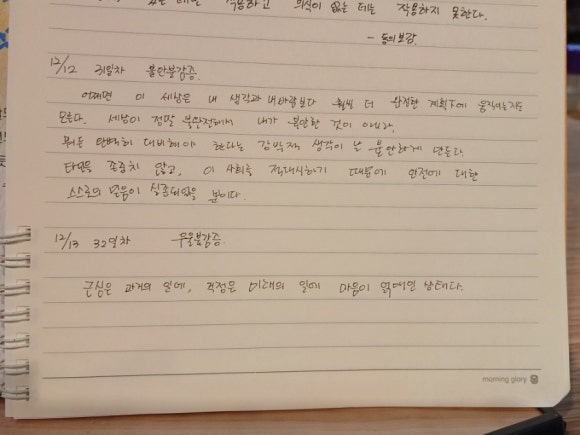 적용하고 의식이 없는 데는 작용하지 못한다.
- 동의보감
12/12 31일차 불안불감증.
어쩌면 이 세상은 내 생각과 내바람보다 훨씬 더 완전한 계획下에 움직이는지도
모른다. 세상이 정말 불안전해서 내가 불안한 것이 아니라,
뭐든 완벽히 대비해야 한다는 강박적 생각이 날 불안하게 만든다.
타인을 존중치 않고, 이 사회를 적대시하기 때문에 안전에 대한
스스로의 믿음이 실종되었을 뿐이다.
12/13 32일차 우울불감증.
근심은 과거의 일에, 걱정은 미래의 일에 마음이 얽매인 상태다.
morning glory